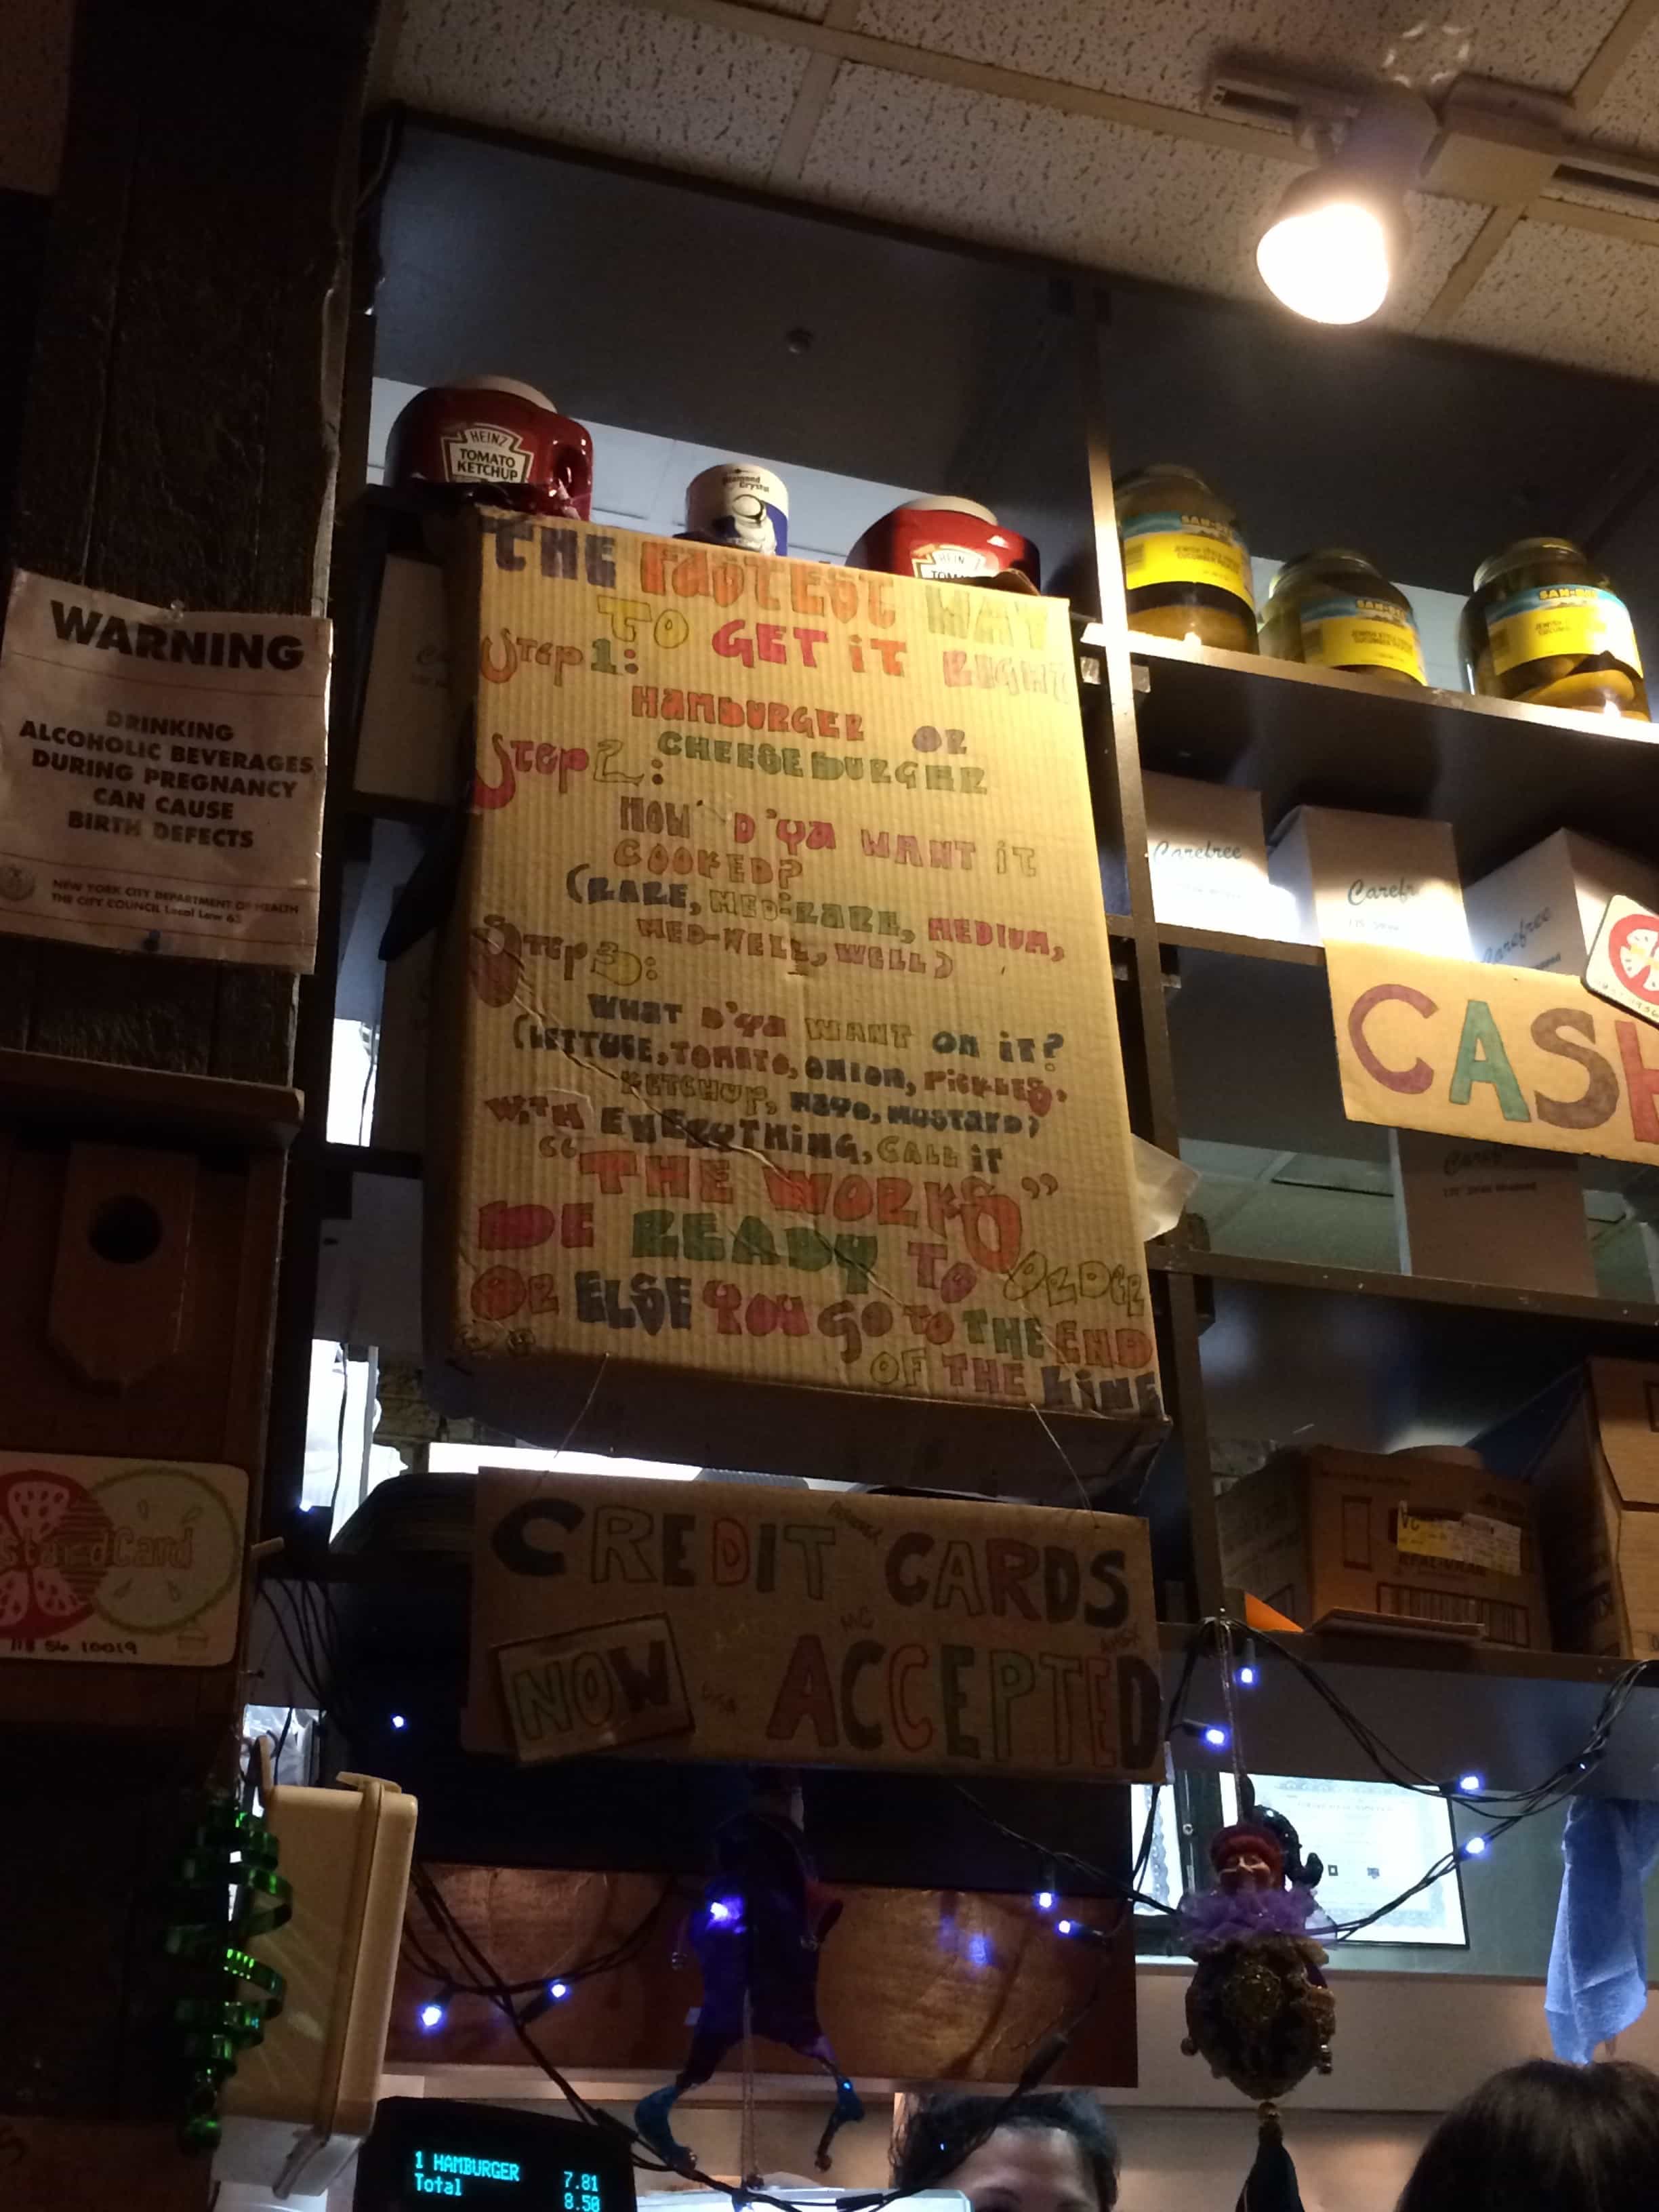 HEINZ
TOMATO
KETCHUP
Diamond
Crystal
HEIN
TOMA
WARNING
DRINKING
ALCOHOLIC BEVERAGES
DURING PREGNANCY
CAN CAUSE
BIRTH DEFECTS
NEW YORK CITY DEPARTMENT OF HEALTH
THE CITY COUNCIL Local Law 63
THE FASTEST WAY
TO GET iT RIGHT
STEP 1:
HAMBURGER OR
CHEESEBURGER
STEP 2:
HOW D'YA WANT iT
COOKED?
(RARE, MED-RARE, MEDIUM,
MED-WELL, WELL)
STEP 3:
WHAT D'YA WANT ON iT?
(LETTUCE, TOMATO, ONION, PICKLES,
KETCHUP, MAYO, MUSTARD)
WiTH EVERYTHiNG, CALL iT
"THE WORKS"
BE READY TO ORDER
OR ELSE YOU GO TO THE END
OF THE LiNE
Carefree
Carefr
Carefree
CASH
CREDIT CARDS
NOW ACCEPTED
MC
stardCard
118 56 10019
1 HAMBURGER 7.81
Total 8.50